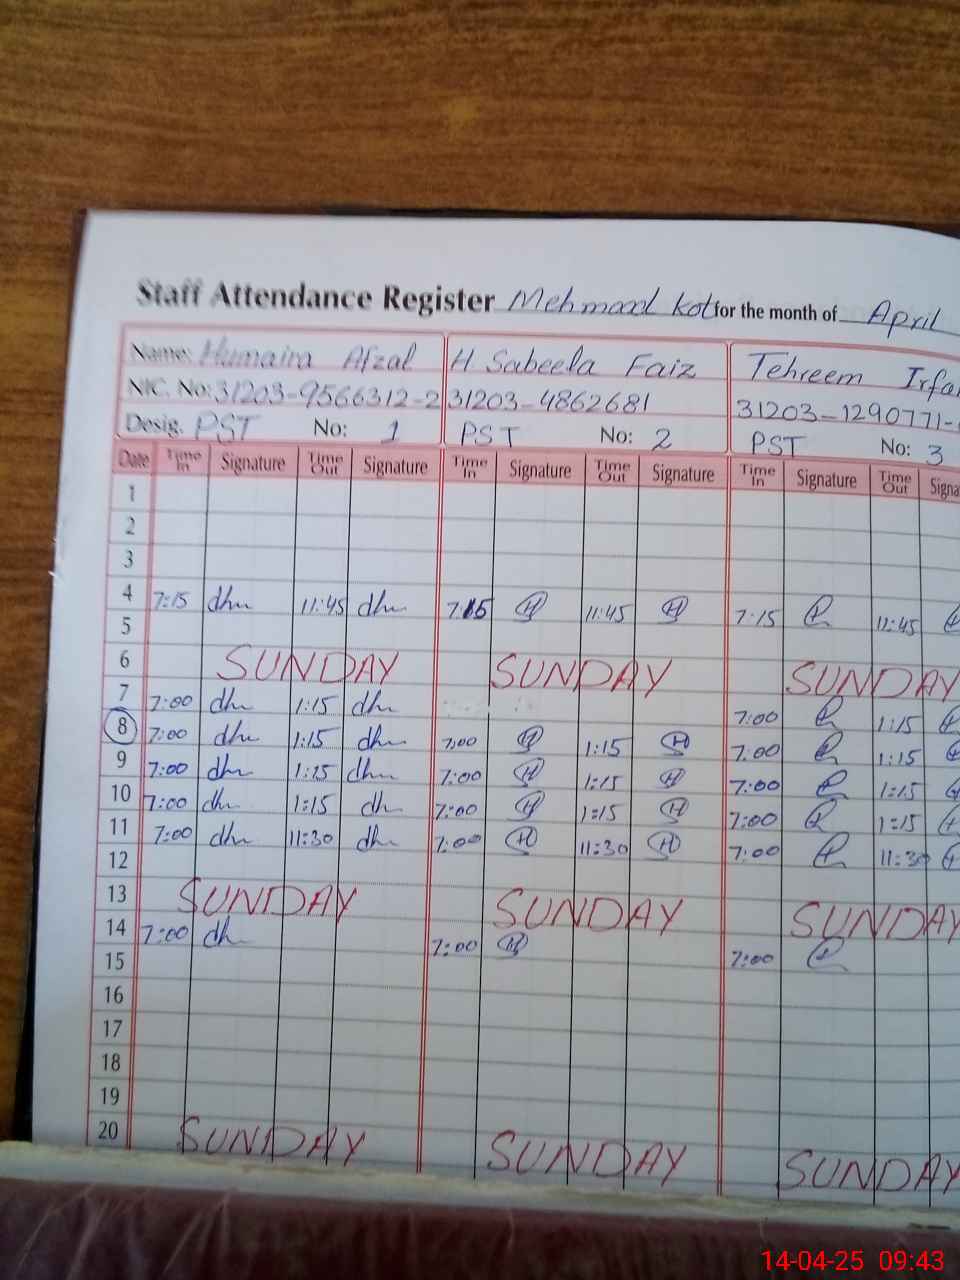 Staff Attendance Register Mehmood Kot for the month of April
Name: Humaira Afzal H. Sabeela Faiz Tehreem Irfa
NIC. No: 31203-9566312-2 31203-4862681 31203-1290771-
Desig. PST No: 1 PST No: 2 PST No: 3
Date Time In Signature Time Out Signature Time In Signature Time Out Signature Time In Signature Time Out Signa
1
2
3
4 7:15 11:45 7:15 11:45 7:15 11:45
5
6 SUNDAY SUNDAY SUNDAY
7 7:00 1:15 7:00 1:15
8 7:00 1:15 7:00 1:15 7:00 1:15
9 7:00 1:15 7:00 1:15 7:00 1:15
10 7:00 1:15 7:00 1:15 7:00 1:15
11 7:00 11:30 7:00 11:30 7:00 11:30
12
13 SUNDAY SUNDAY SUNDAY
14 7:00 7:00 7:00
15
16
17
18
19
20 SUNDAY SUNDAY SUNDAY
14-04-25 09:43